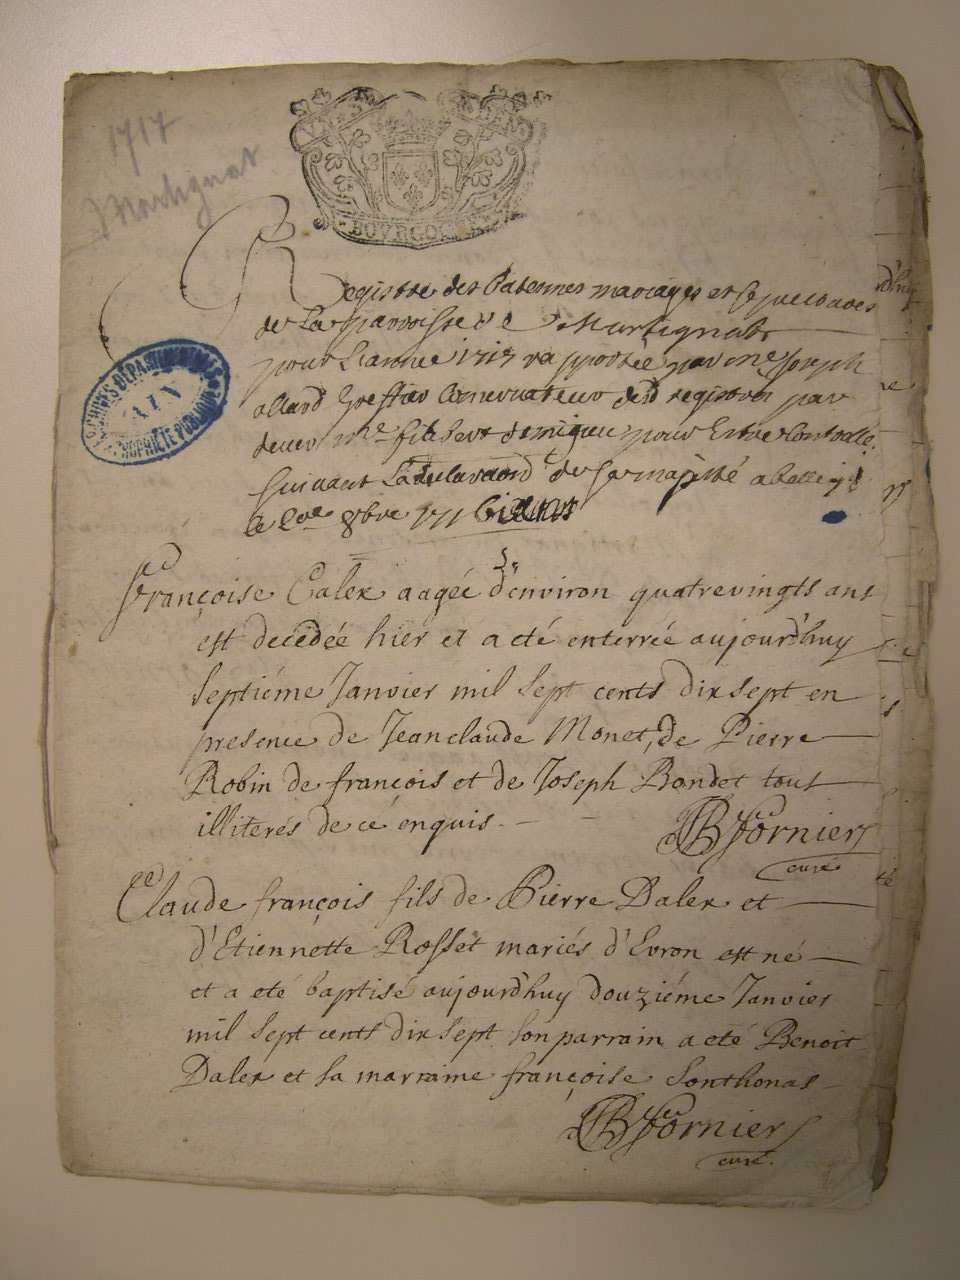 1717
Martignat
BOURGOGNE
ARCHIVES DÉPARTEMENTALES
AIN
PROPRIÉTÉ PUBLIQUE
Registre des Batemes mariages et sepultures
de La parroisse de Martignat
pour Lannée 1717 par me Joseph
allard Greffier Conservateur desd registres par
devers me filibert pour Estre
suivant La declaration de sa majesté a
le 8bre 1716
Françoise Calex aagée d'environ quatrevingts ans
est decedée hier et a eté enterrée aujourd'huy
septiéme Janvier mil sept cents dix sept en
presence de Jeanclaude Monet, de Pierre
Robin de françois et de Joseph Bondet tous
illiterés de ce enquis.
JB Fornier
curé
Claude françois fils de Pierre Dalex et
d'Etiennette Rosset mariés d'Evron est né
et a eté baptisé aujourd'huy douziéme Janvier
mil sept cents dix sept son parrain a eté Benoit
Dalex et sa marraine françoise Sonthonas
JB Fornier
curé.